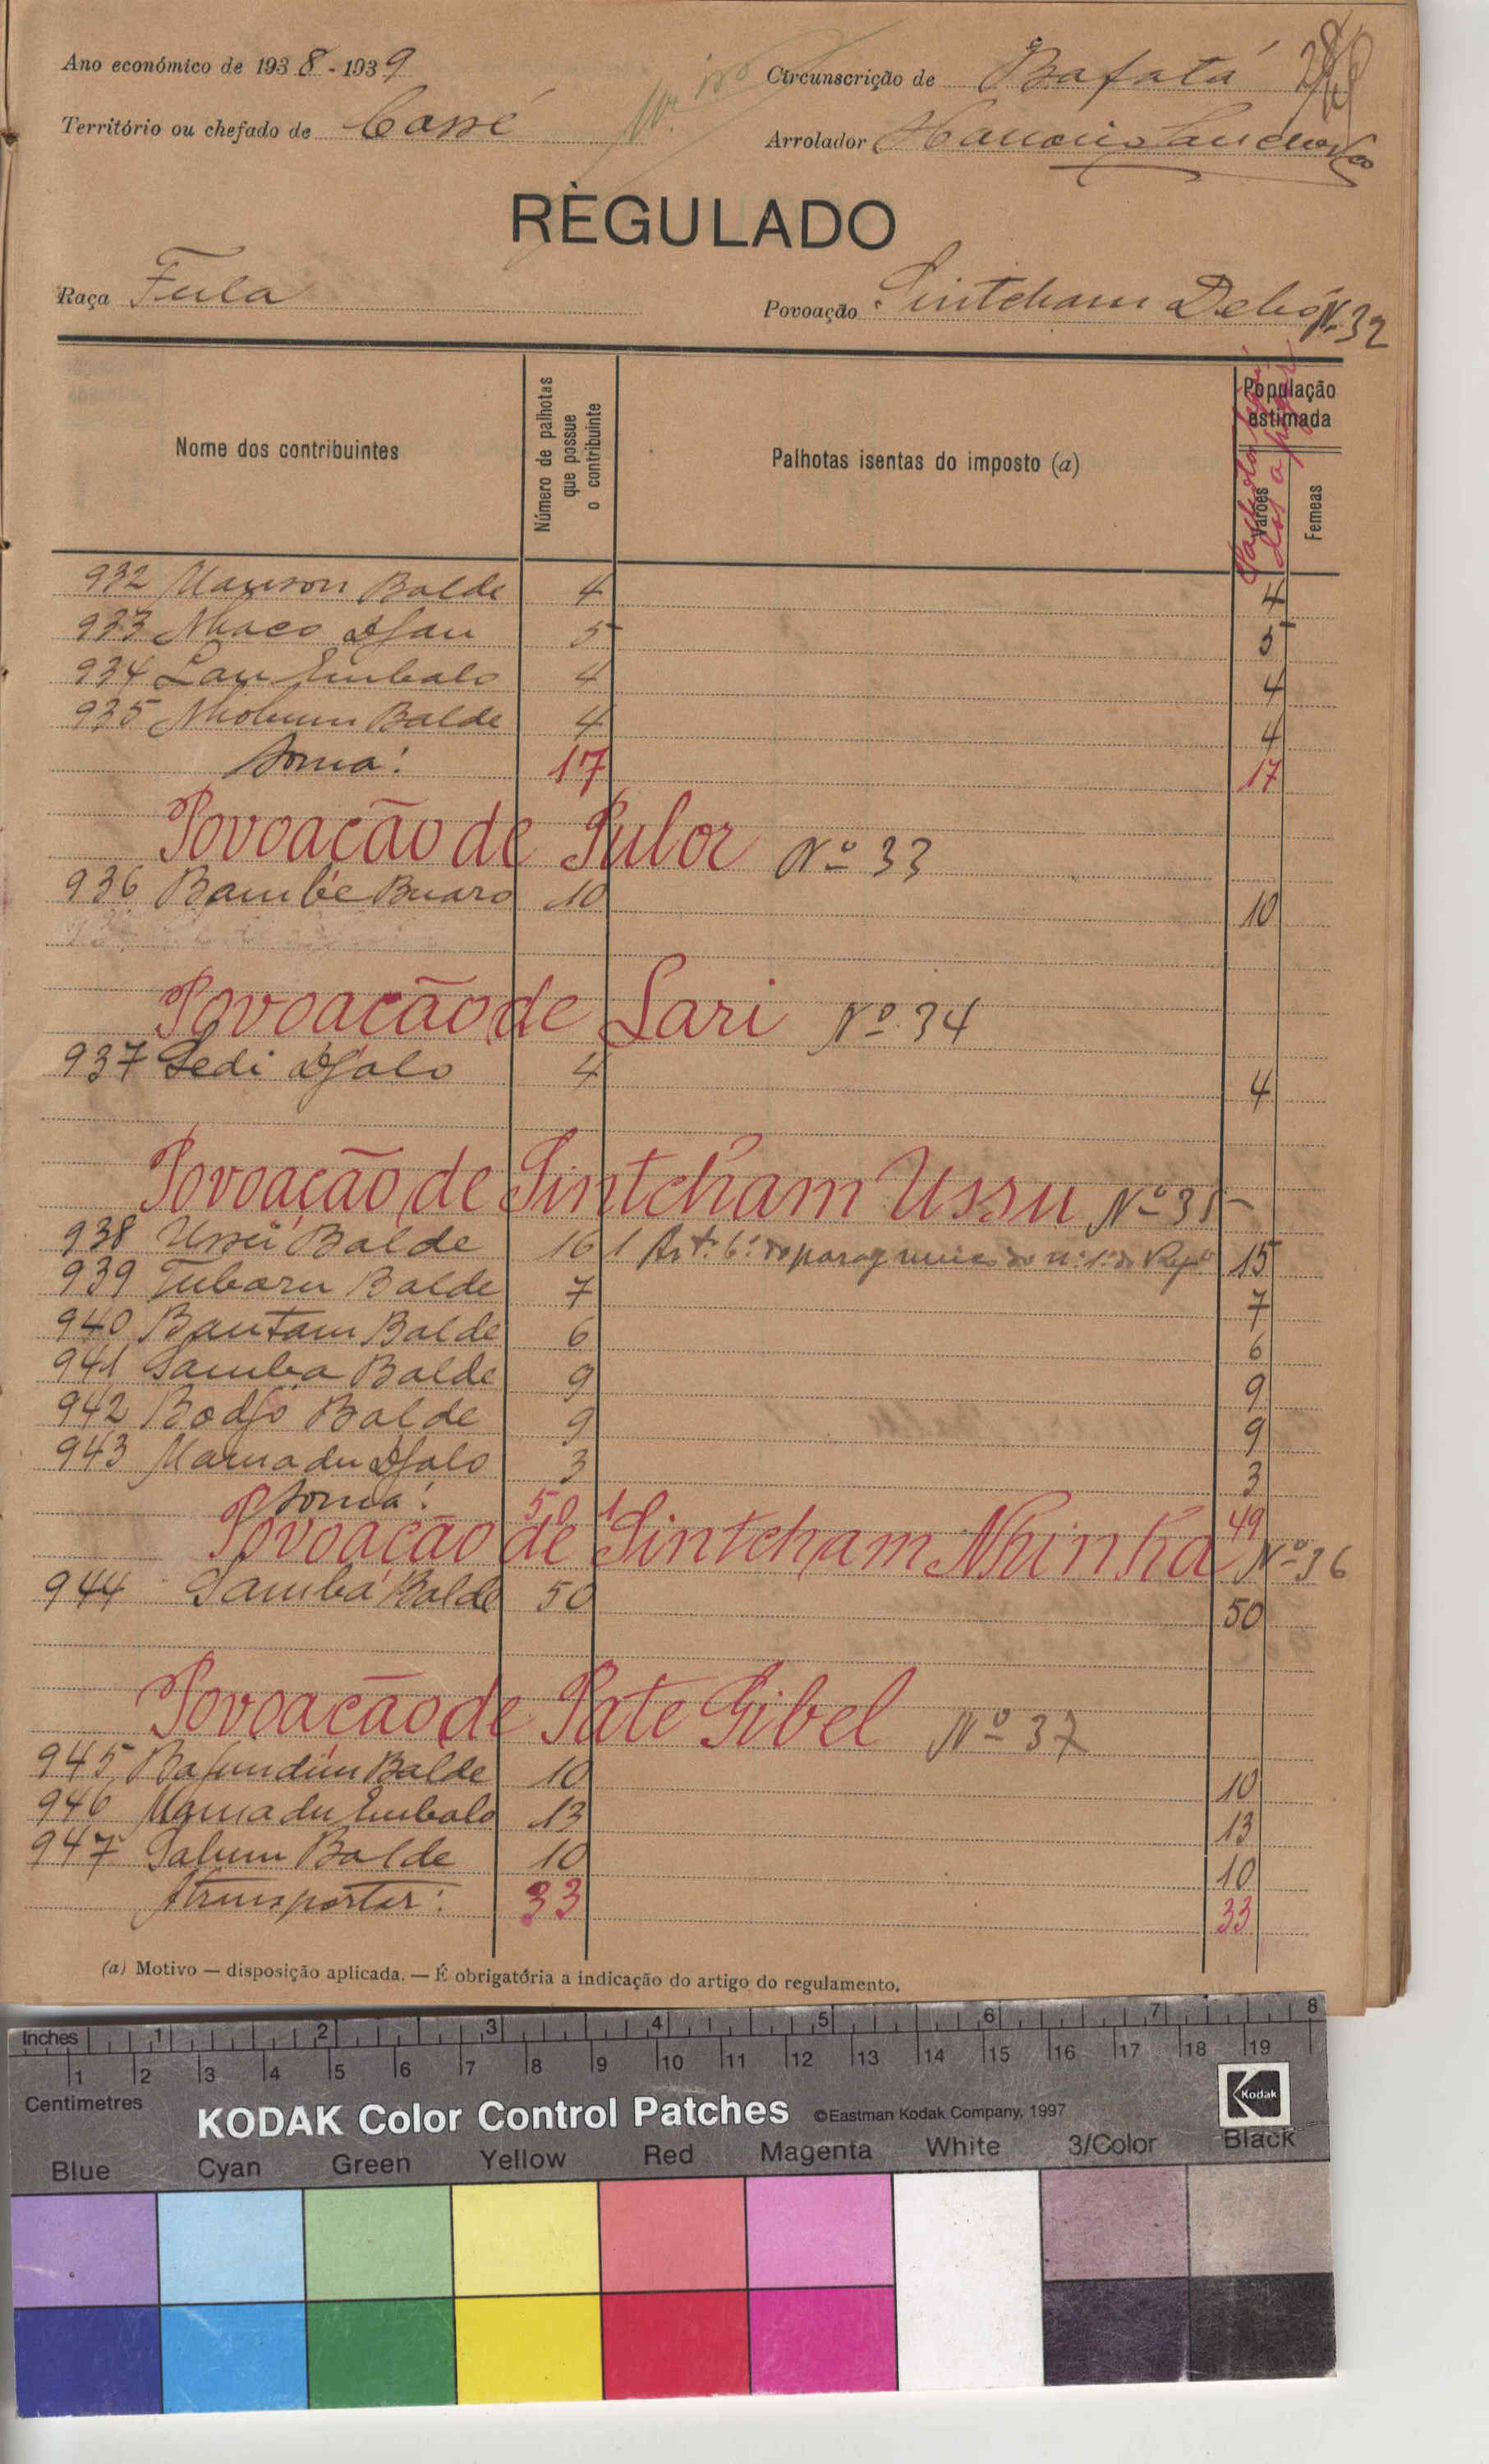 Ano económico de 1938-1939
Circunscrição de Bafatá
Território ou chefado de Cossé
Arrolador
REGULADO
Raça Fula
Povoação Sintcham Debó Nº 32
Nome dos contribuintes
Número de palhotas que possue o contribuinte
Palhotas isentas do imposto (a)
População estimada
Varões
Femeas
932 Balde 4 4
933 Djau 5 5
934 Embalo 4 4
935 Balde 4 4
Soma: 17 17
Povoação de Pulor Nº 33
936 10 10
Povoação de Sari Nº 34
937 Sedi Djalo 4 4
Povoação de Sintcham Ussu Nº 35
938 Ussú Balde 16 1 Art. 6º 15
939 Balde 7 7
940 Bantam Balde 6 6
941 Samba Balde 9 9
942 Bodjo Balde 9 9
943 Mamadu Djalo 3 3
Soma: 50 1 49
Povoação de Sintcham Nhinha Nº 36
944 Samba Balde 50 50
Povoação de Pate Gibel Nº 37
945 Balde 10 10
946 Mamadu Embalo 13 13
947 Balde 10 10
Atransportar: 33 33
(a) Motivo — disposição aplicada. — É obrigatória a indicação do artigo do regulamento.
Inches 1 2 3 4 5 6 7 8
1 2 3 4 5 6 7 8 9 10 11 12 13 14 15 16 17 18 19
Centimetres
KODAK Color Control Patches ©Eastman Kodak Company, 1997
Kodak
Blue Cyan Green Yellow Red Magenta White 3/Color Black